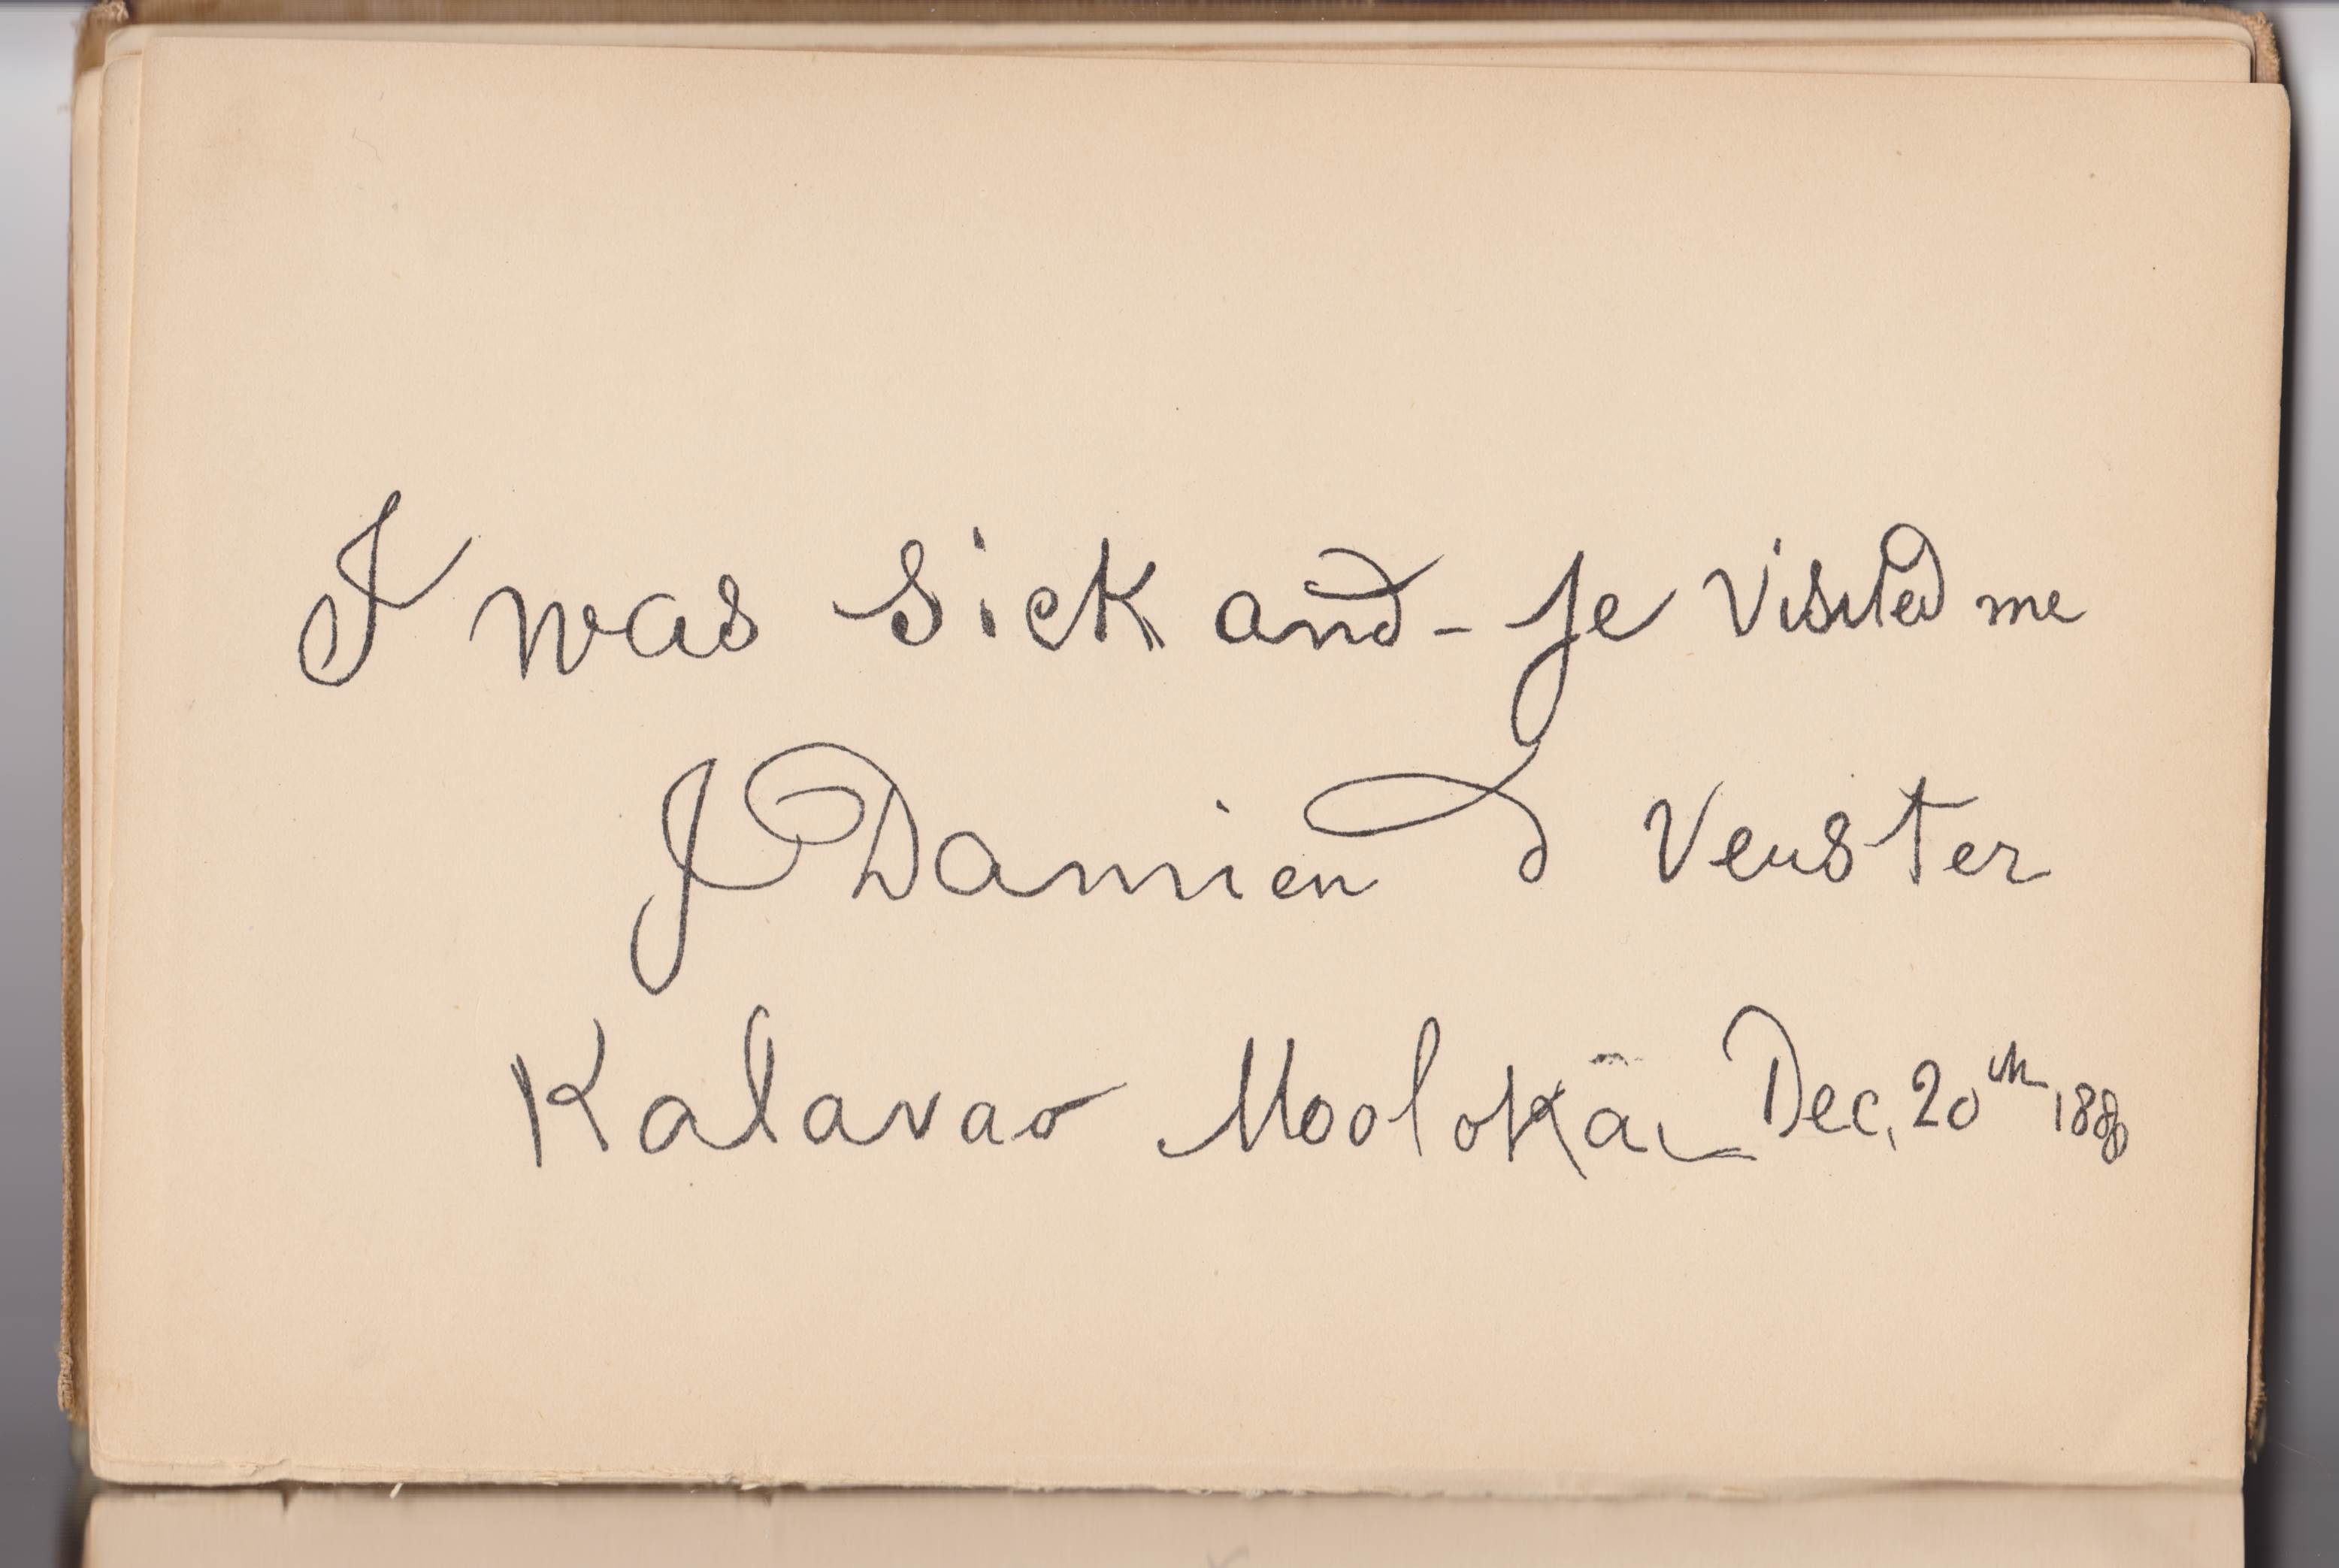 I was sick and - ye visited me
J Damien d Veuster
Kalavao Molokaï Dec, 20th 1888